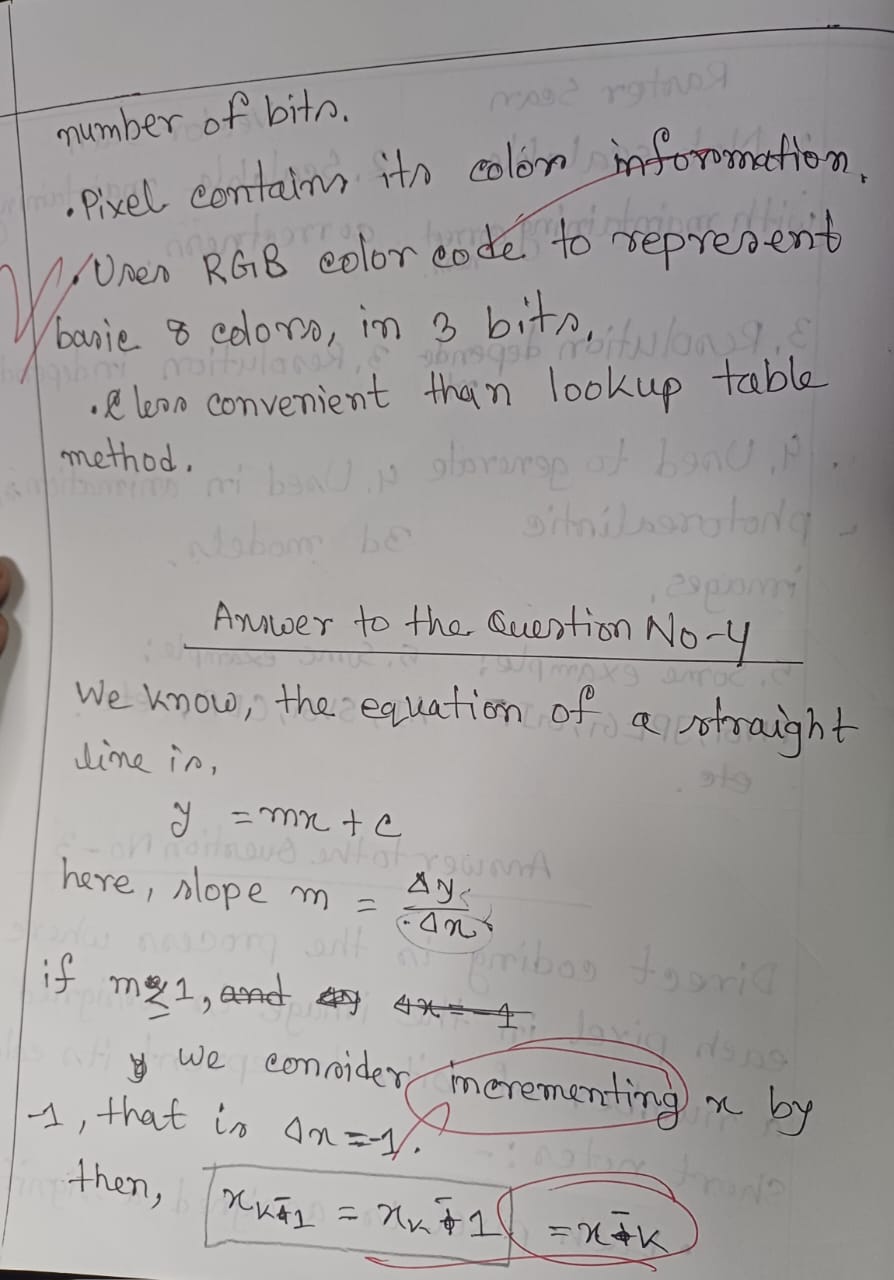 number of bits.
. Pixel contains its color information.
. Uses RGB color code to represent
basic 8 colors, in 3 bits.
. less convenient than lookup table
method.
Answer to the Question No-4
We know, the equation of a straight
line is,
y = mx + c
here, slope m = Δy / Δx
if m≤1, and Δy Δx = -1
we consider incrementing x by
-1, that is Δx = -1.
then, x_{k-1} = x_k - 1 = x - k